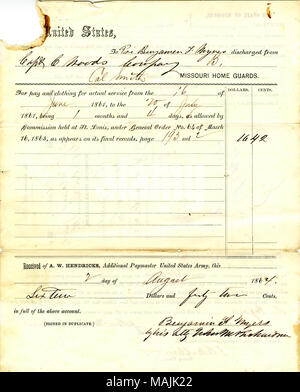 United States,
To Pvt Benjamin F Myers discharged from
Capt C Woods Company D.
Col Smith MISSOURI HOME GUARDS.
DOLLARS. CENTS.
For pay and clothing for actual service from the 16 of
June 1861, to the 20 of July
1861, being 1 months and 4 days, as allowed by
Commission held at St. Louis, under General Order No. 64 of March
16, 1863, as appears on its final records, page 193 and 2
16 42
Received of A. W. HENDRICKS, Additional Paymaster United States Army, this
2 day of August 1864.
Sixteen Dollars and forty two Cents,
in full of the above account.
(SIGNED IN DUPLICATE.)
Benjamin F Myers
by his atty
alamy
Image ID: MAJK22